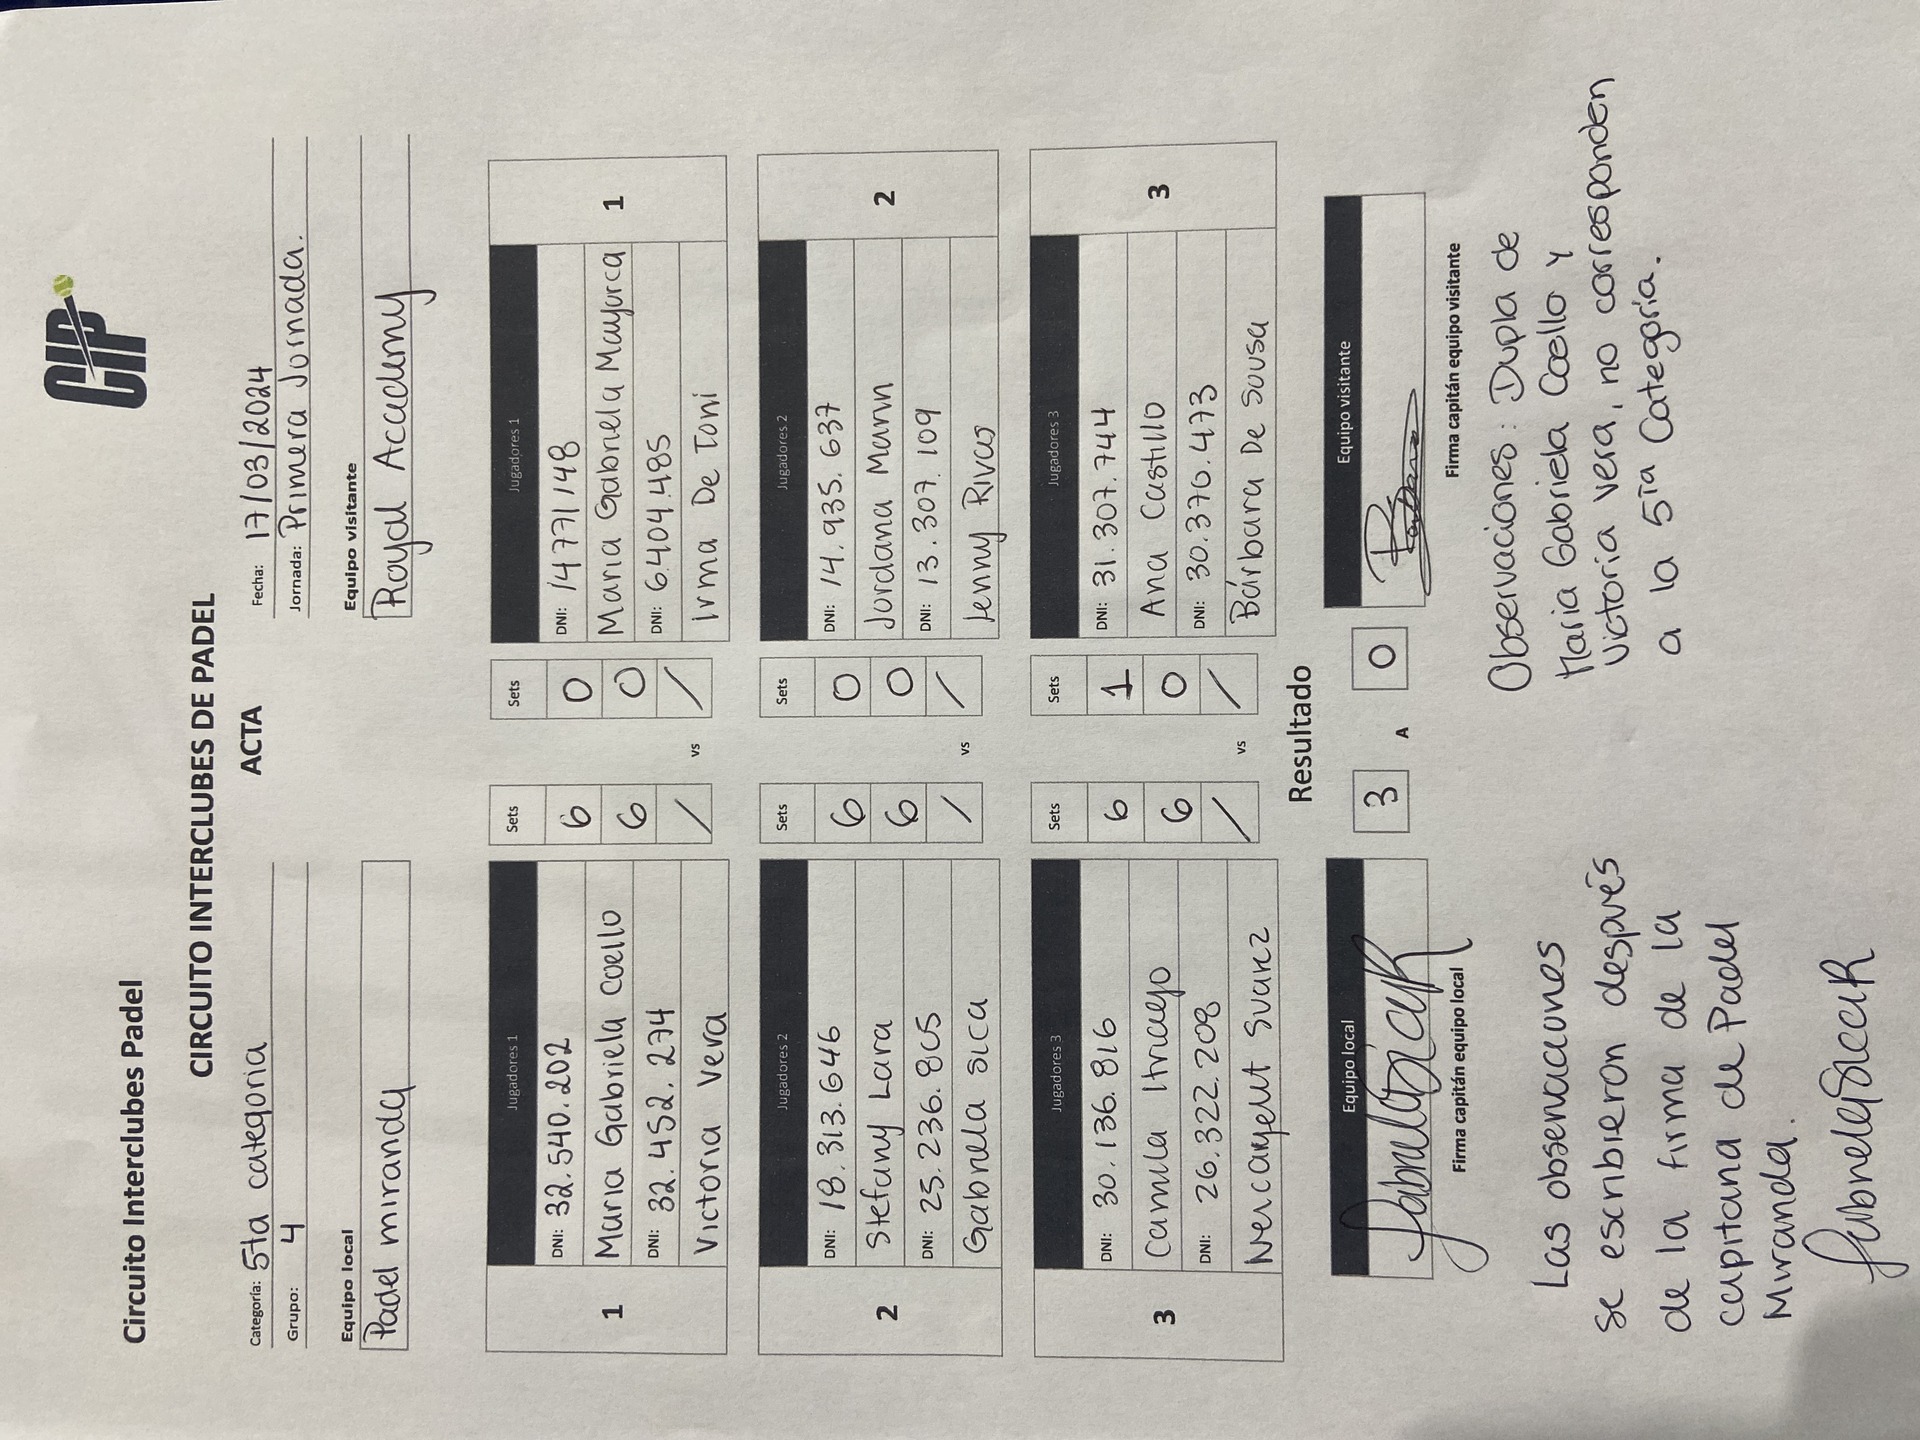 CIP
Circuito Interclubes Padel
CIRCUITO INTERCLUBES DE PADEL
ACTA
Categoría: 5ta categoria
Fecha: 17/03/2024
Grupo: 4
Jornada: Primera Jornada.
Equipo local
Equipo visitante
Padel miranda
Royal Academy
Jugadores 1
Sets
Sets
Jugadores 1
1
DNI: 32.540.202
6
0
DNI: 14771148
1
Maria Gabriella Coello
6
0
Maria Gabriela Mayorca
DNI: 32.452.274
/
/
DNI: 6.404.485
Victoria Vera
vs
Irma De Toni
Jugadores 2
Sets
Sets
Jugadores 2
2
DNI: 18.313.646
6
0
DNI: 14.935.637
2
Stefany Lara
6
0
Jordana Mann
DNI: 25.236.805
/
/
DNI: 13.307.109
Gabriela Sica
vs
Jenny Rivas
Jugadores 3
Sets
Sets
Jugadores 3
3
DNI: 30.136.816
6
1
DNI: 31.307.744
3
Camila
6
0
Ana Castillo
DNI: 26.322.208
/
/
DNI: 30.370.473
Suarez
vs
Bárbara De Sousa
Resultado
Equipo local
3
A
0
Equipo visitante
Firma capitán equipo local
Firma capitán equipo visitante
Observaciones: Dupla de
Maria Gabriela Coello y
Victoria vera, no corresponden
a la 5ta Categoría.
Las observaciones
se escribieron después
de la firma de la
capitana de Padel
Miranda.